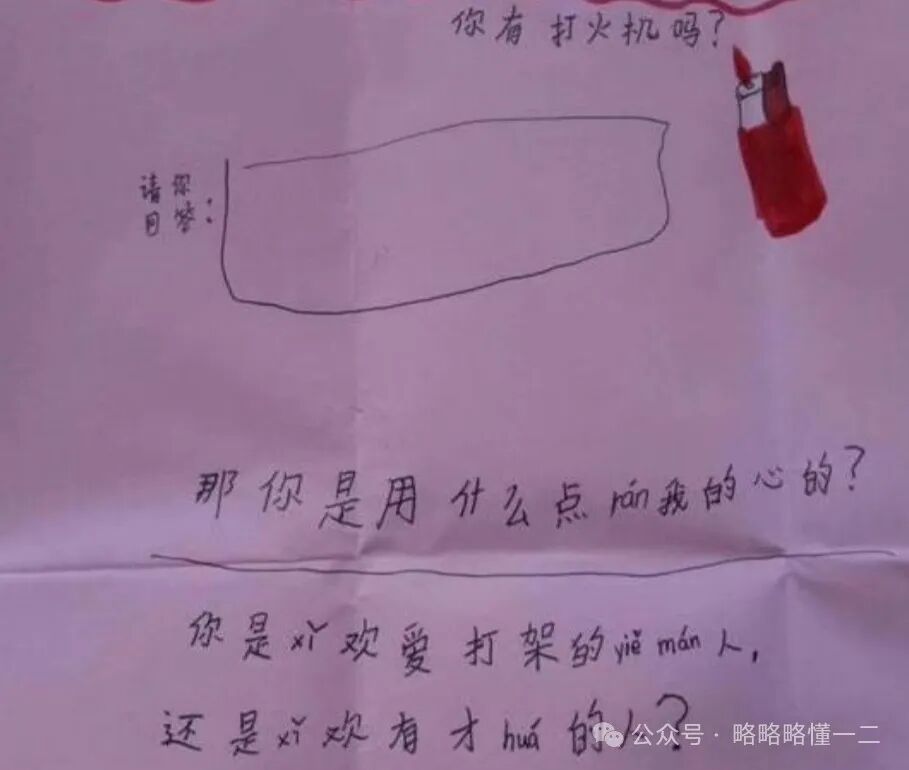 你有打火机吗？
请你
回答：
那你是用什么点rán我的心的？
你是xǐ欢爱打架的yiě mán人，
还是xǐ欢有才huá的人？
公众号·略略略懂一二